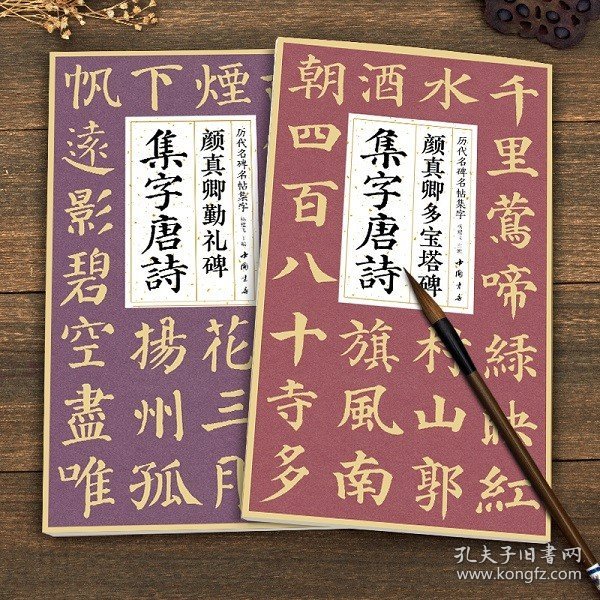 煙花三月
下揚州孤
帆遠影碧空盡唯
历代名碑名帖集字
中国书店
颜真卿勤礼碑
集字唐詩
千里鶯啼綠映紅
水村山郭
酒旗風南
朝四百八十寺多
历代名碑名帖集字
中国书店
颜真卿多宝塔碑
集字唐詩
孔夫子旧書网
www.kongfz.com